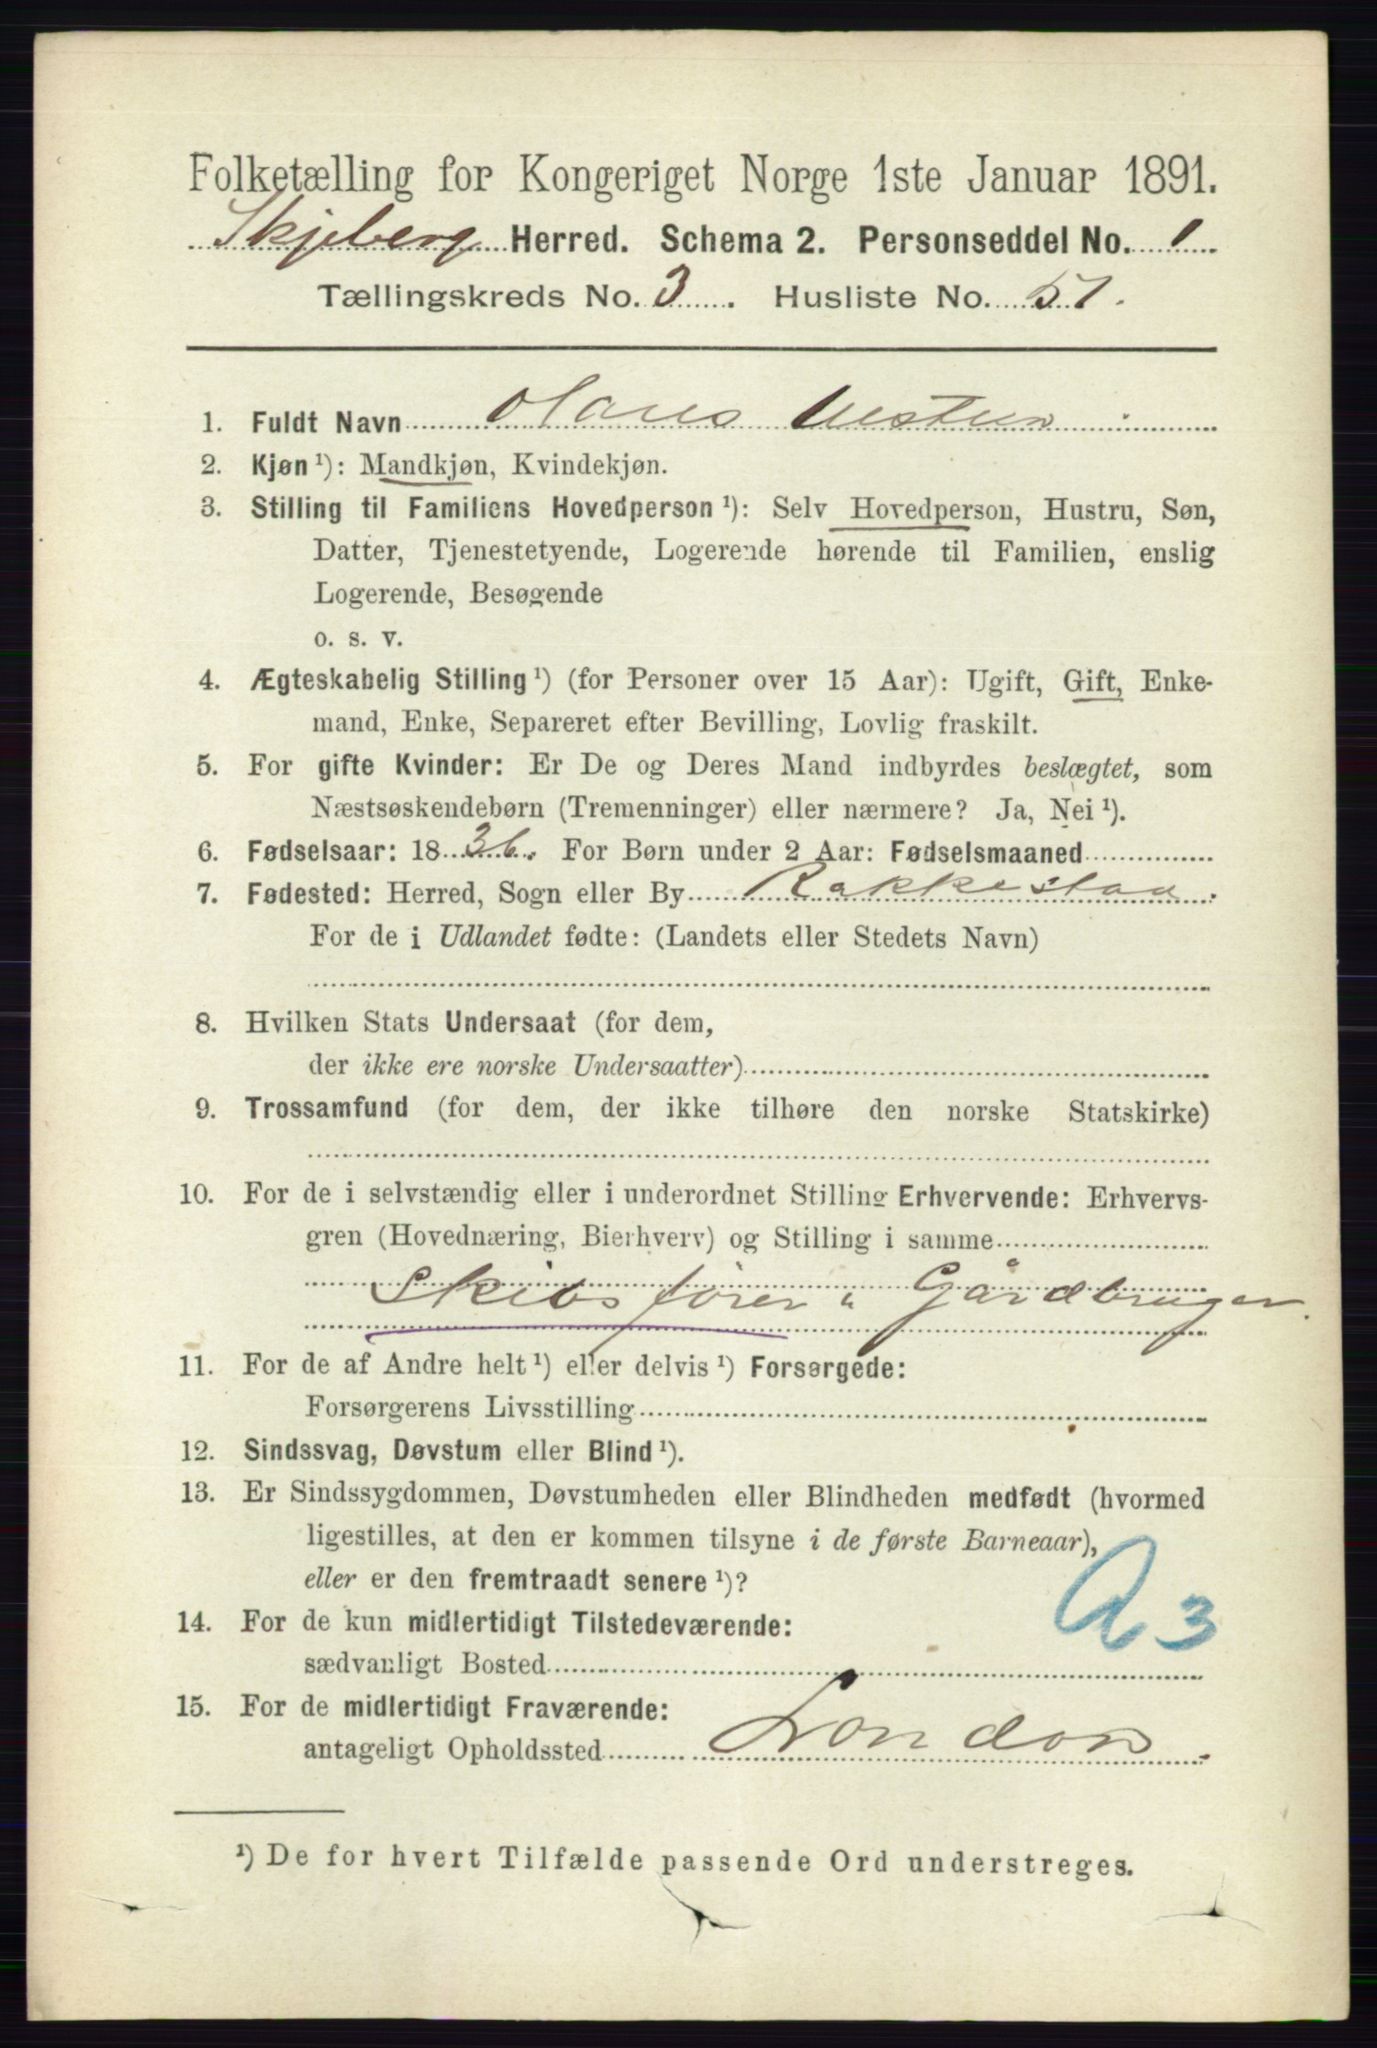 Folketælling for Kongeriget Norge 1ste Januar 1891.
Skjeberg Herred. Schema 2. Personseddel No. 1.
Tællingskreds No. 3. Husliste No. 57.
1. Fuldt Navn Olaus
2. Kjøn ¹): Mandkjøn, Kvindekjøn.
3. Stilling til Familiens Hovedperson ¹): Selv Hovedperson, Hustru, Søn,
Datter, Tjenestetyende, Logerende hørende til Familien, enslig
Logerende, Besøgende
o. s. v.
4. Ægteskabelig Stilling ¹) (for Personer over 15 Aar): Ugift, Gift, Enke-
mand, Enke, Separeret efter Bevilling, Lovlig fraskilt.
5. For gifte Kvinder: Er De og Deres Mand indbyrdes beslægtet, som
Næstsøskendebørn (Tremenninger) eller nærmere? Ja, Nei ¹).
6. Fødselsaar: 1836. For Børn under 2 Aar: Fødselsmaaned
7. Fødested: Herred, Sogn eller By Rakkestad.
For de i Udlandet fødte: (Landets eller Stedets Navn)
8. Hvilken Stats Undersaat (for dem,
der ikke ere norske Undersaatter)
9. Trossamfund (for dem, der ikke tilhøre den norske Statskirke)
10. For de i selvstændig eller i underordnet Stilling Erhvervende: Erhvervs-
gren (Hovednæring, Bierhverv) og Stilling i samme
Skibsfører " Gårdbruger.
11. For de af Andre helt ¹) eller delvis ¹) Forsørgede:
Forsørgerens Livsstilling
12. Sindssvag, Døvstum eller Blind ¹).
13. Er Sindssygdommen, Døvstumheden eller Blindheden medfødt (hvormed
ligestilles, at den er kommen tilsyne i de første Barneaar),
eller er den fremtraadt senere ¹)?
A 3
14. For de kun midlertidigt Tilstedeværende:
sædvanligt Bosted
15. For de midlertidigt Fraværende:
antageligt Opholdssted London.
¹) De for hvert Tilfælde passende Ord understreges.